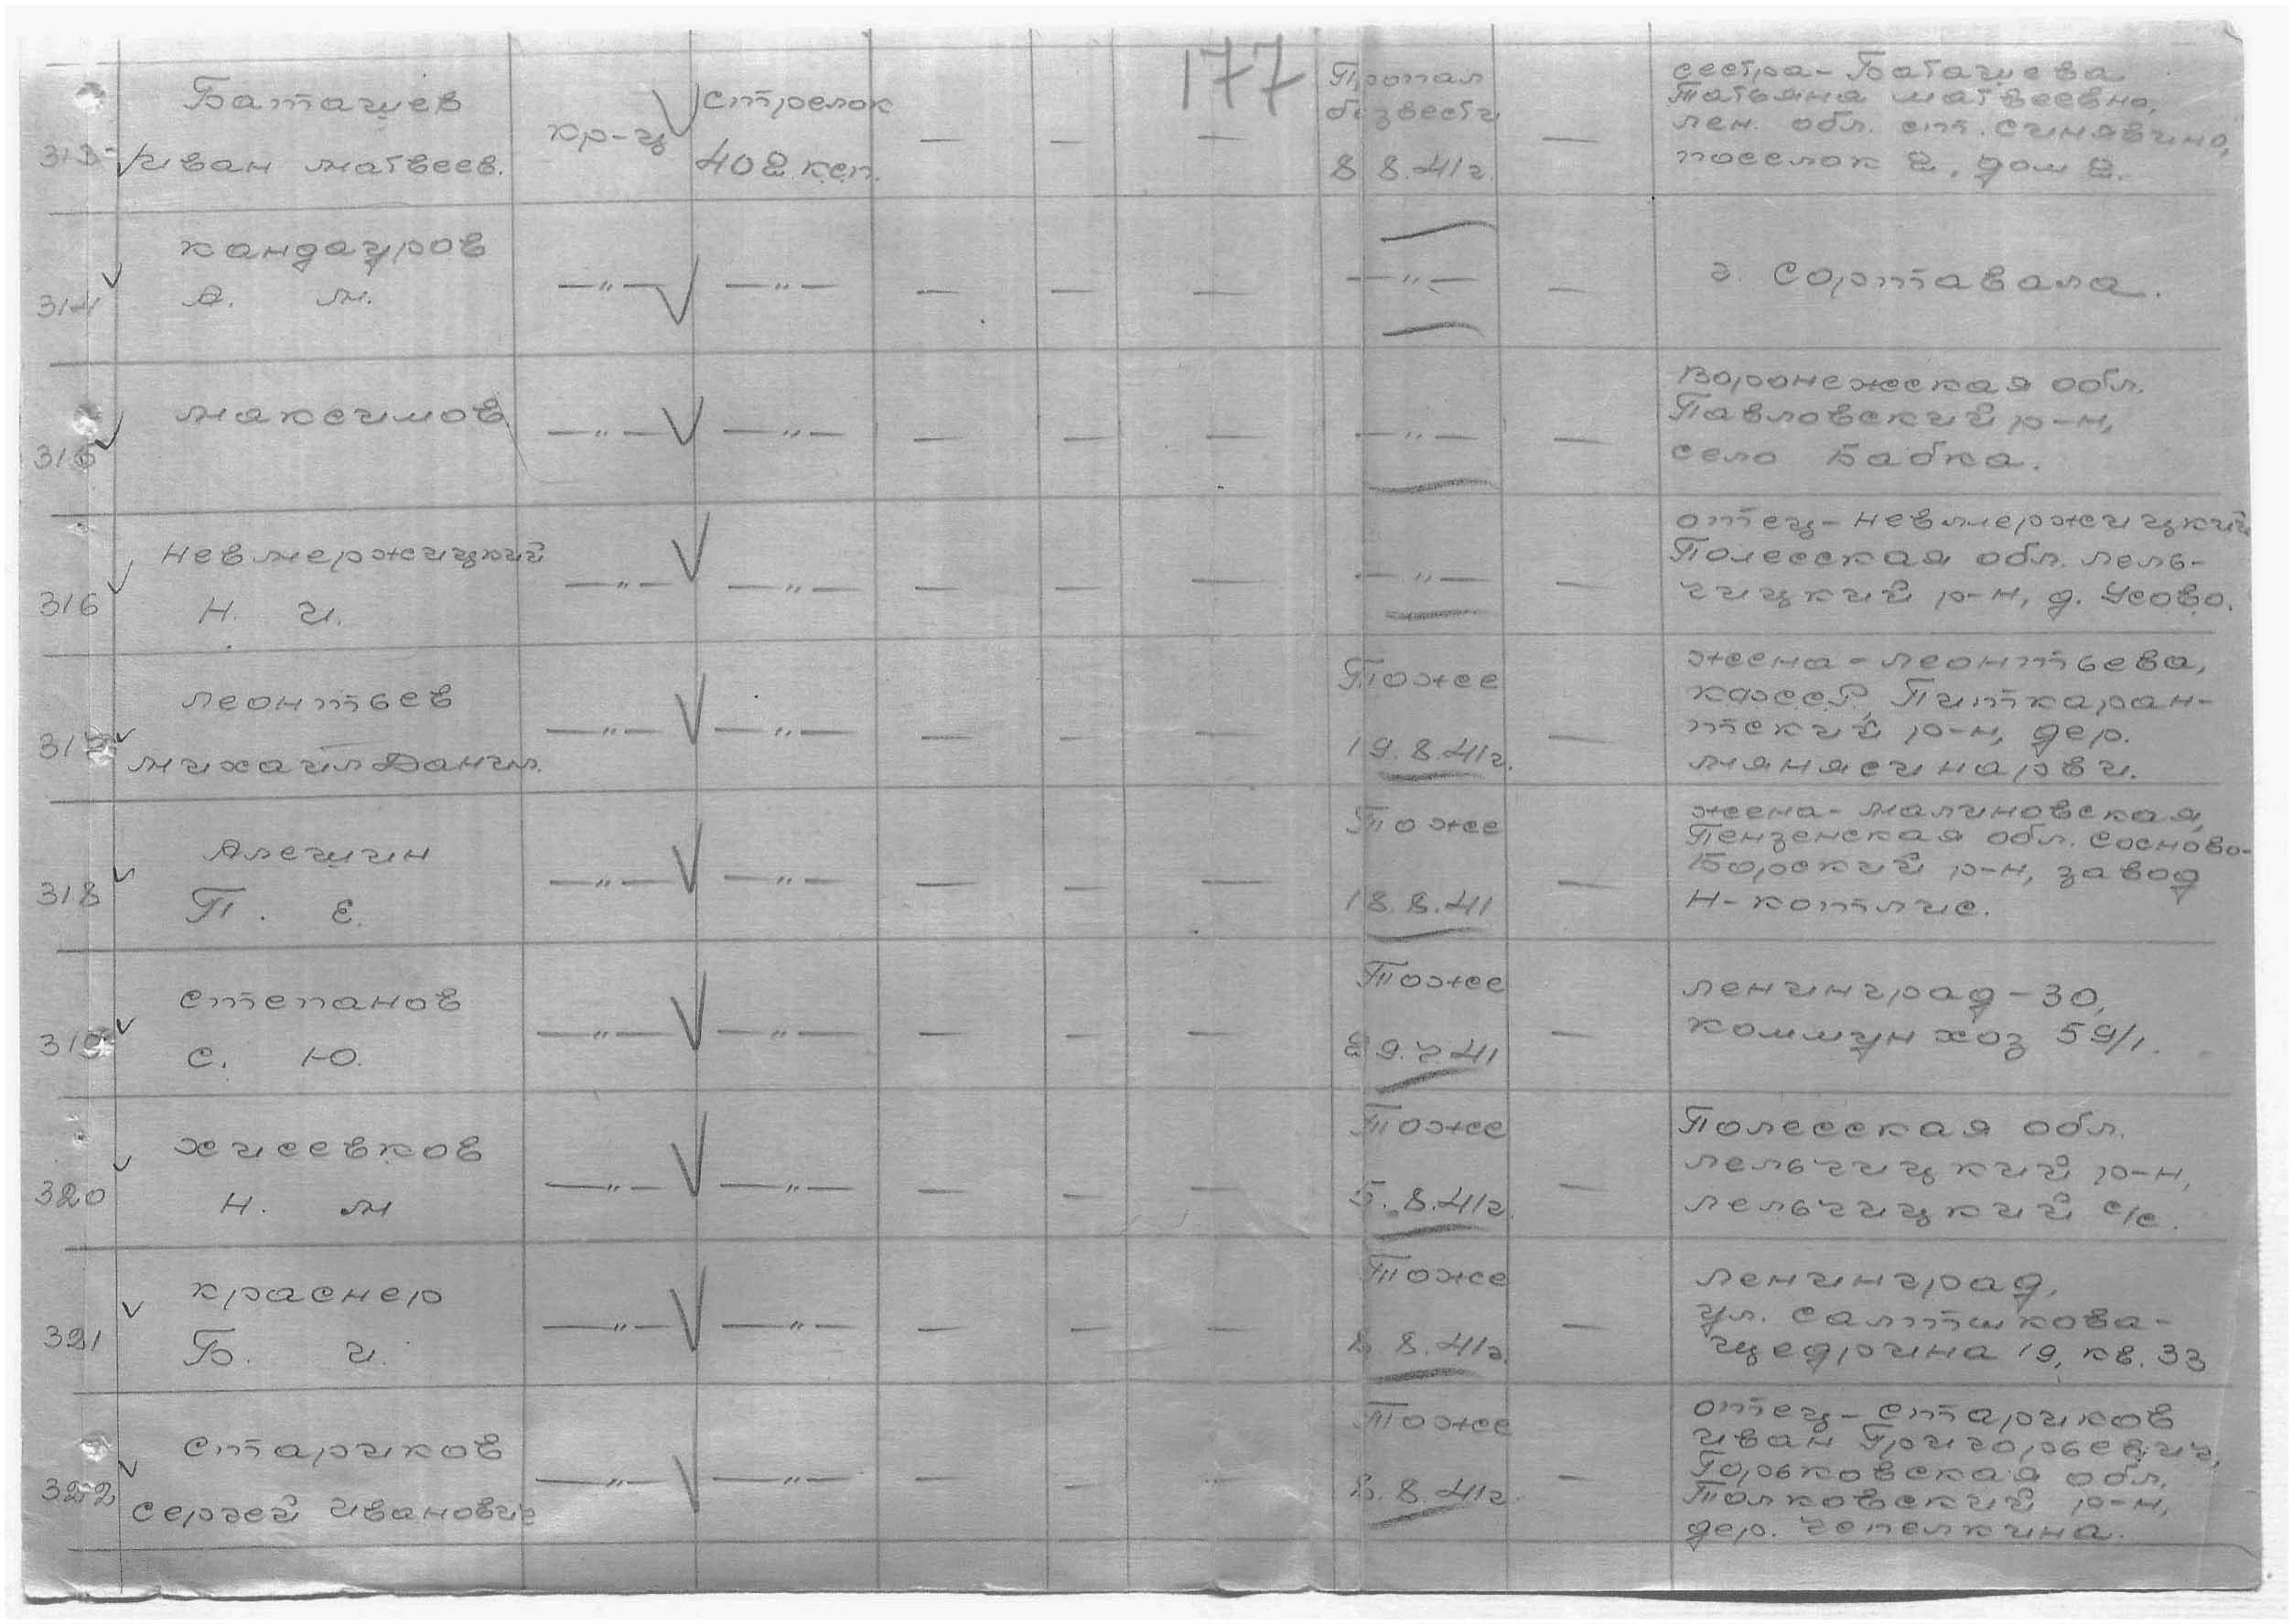 177
313 Баташев кр-ц стрелок — — — Пропал сестра - Баташева
Иван Матвеев. 402 ксп. безвести Татьяна Матвеевна,
8.8.41г. — лен. обл. ст. Синявино,
поселок 2, дом 2.
314 Кандауров —"— —"— — — — —"— — г. Сортавала.
А. М.
315 Максимов —"— —"— — — — —"— — Воронежская обл.
Павловский р-н,
село Бабка.
316 Невмержицкий —"— —"— — — — —"— — отец - Невмержицкий
Н. И. Полесская обл. Лель-
чицкий р-н, д. Усово.
317 Леонтьев —"— —"— — — — Тоже — жена - Леонтьева,
Михаил Данил. 19.8.41г. КФССР, Питкаран-
тский р-н, дер.
Мянясинарви.
318 Алешин —"— —"— — — — Тоже — жена - Малиновская,
П. Е. 18.8.41 Пензенская обл. Сосново-
Борский р-н, завод
Н-Котлис.
319 Степанов —"— —"— — — — Тоже — Ленинград - 30,
С. Ю. 29.7.41 Коммунхоз 59/1.
320 Хисевков —"— —"— — — — Тоже — Полесская обл.
Н. М 5.8.41г. Лельчицкий р-н,
Лельчицкий с/с.
321 Краснер —"— —"— — — — Тоже — Ленинград,
Б. И. 8.41г. ул. Салтыкова-
Щедрина 19, кв. 33
322 Стариков —"— —"— — — — Тоже — отец - Стариков
Сергей Иванович 8.41г. Иван Григорьевич,
Горьковская обл.
Толковский р-н,
дер. Чепелкина.